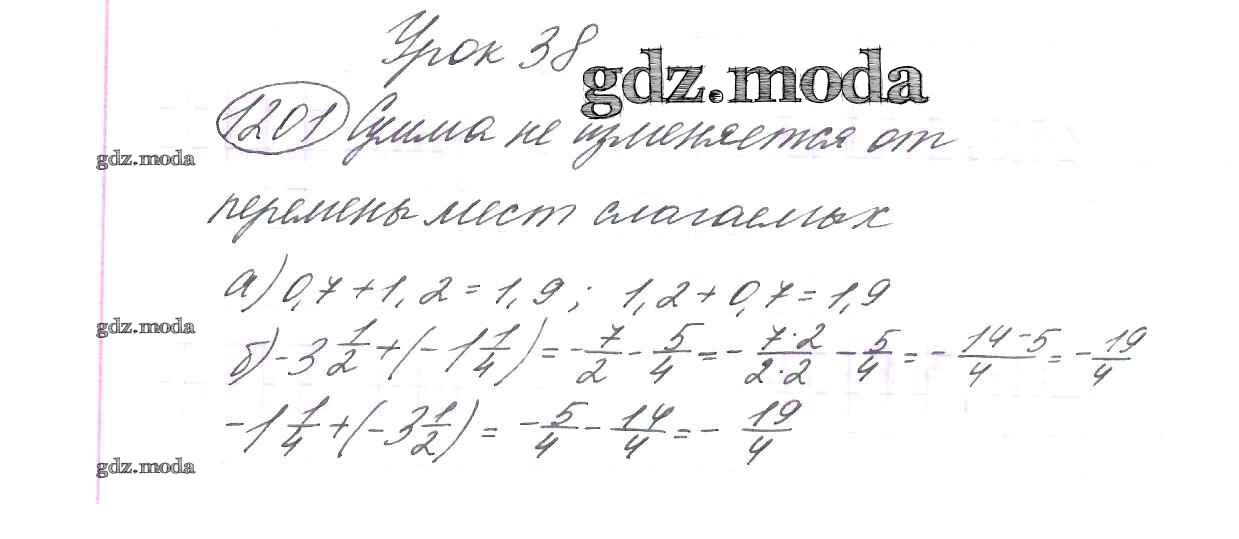 Урок 38
gdz.moda
1201 Сумма не изменяется от
gdz.moda
перемены мест слагаемых
а) 0,7 + 1,2 = 1,9 ; 1,2 + 0,7 = 1,9
gdz.moda
б) -3 1/2 + (-1 1/4) = -7/2 - 5/4 = - 7·2/2·2 - 5/4 = - 14-5/4 = - 19/4
-1 1/4 + (-3 1/2) = -5/4 - 14/4 = - 19/4
gdz.moda